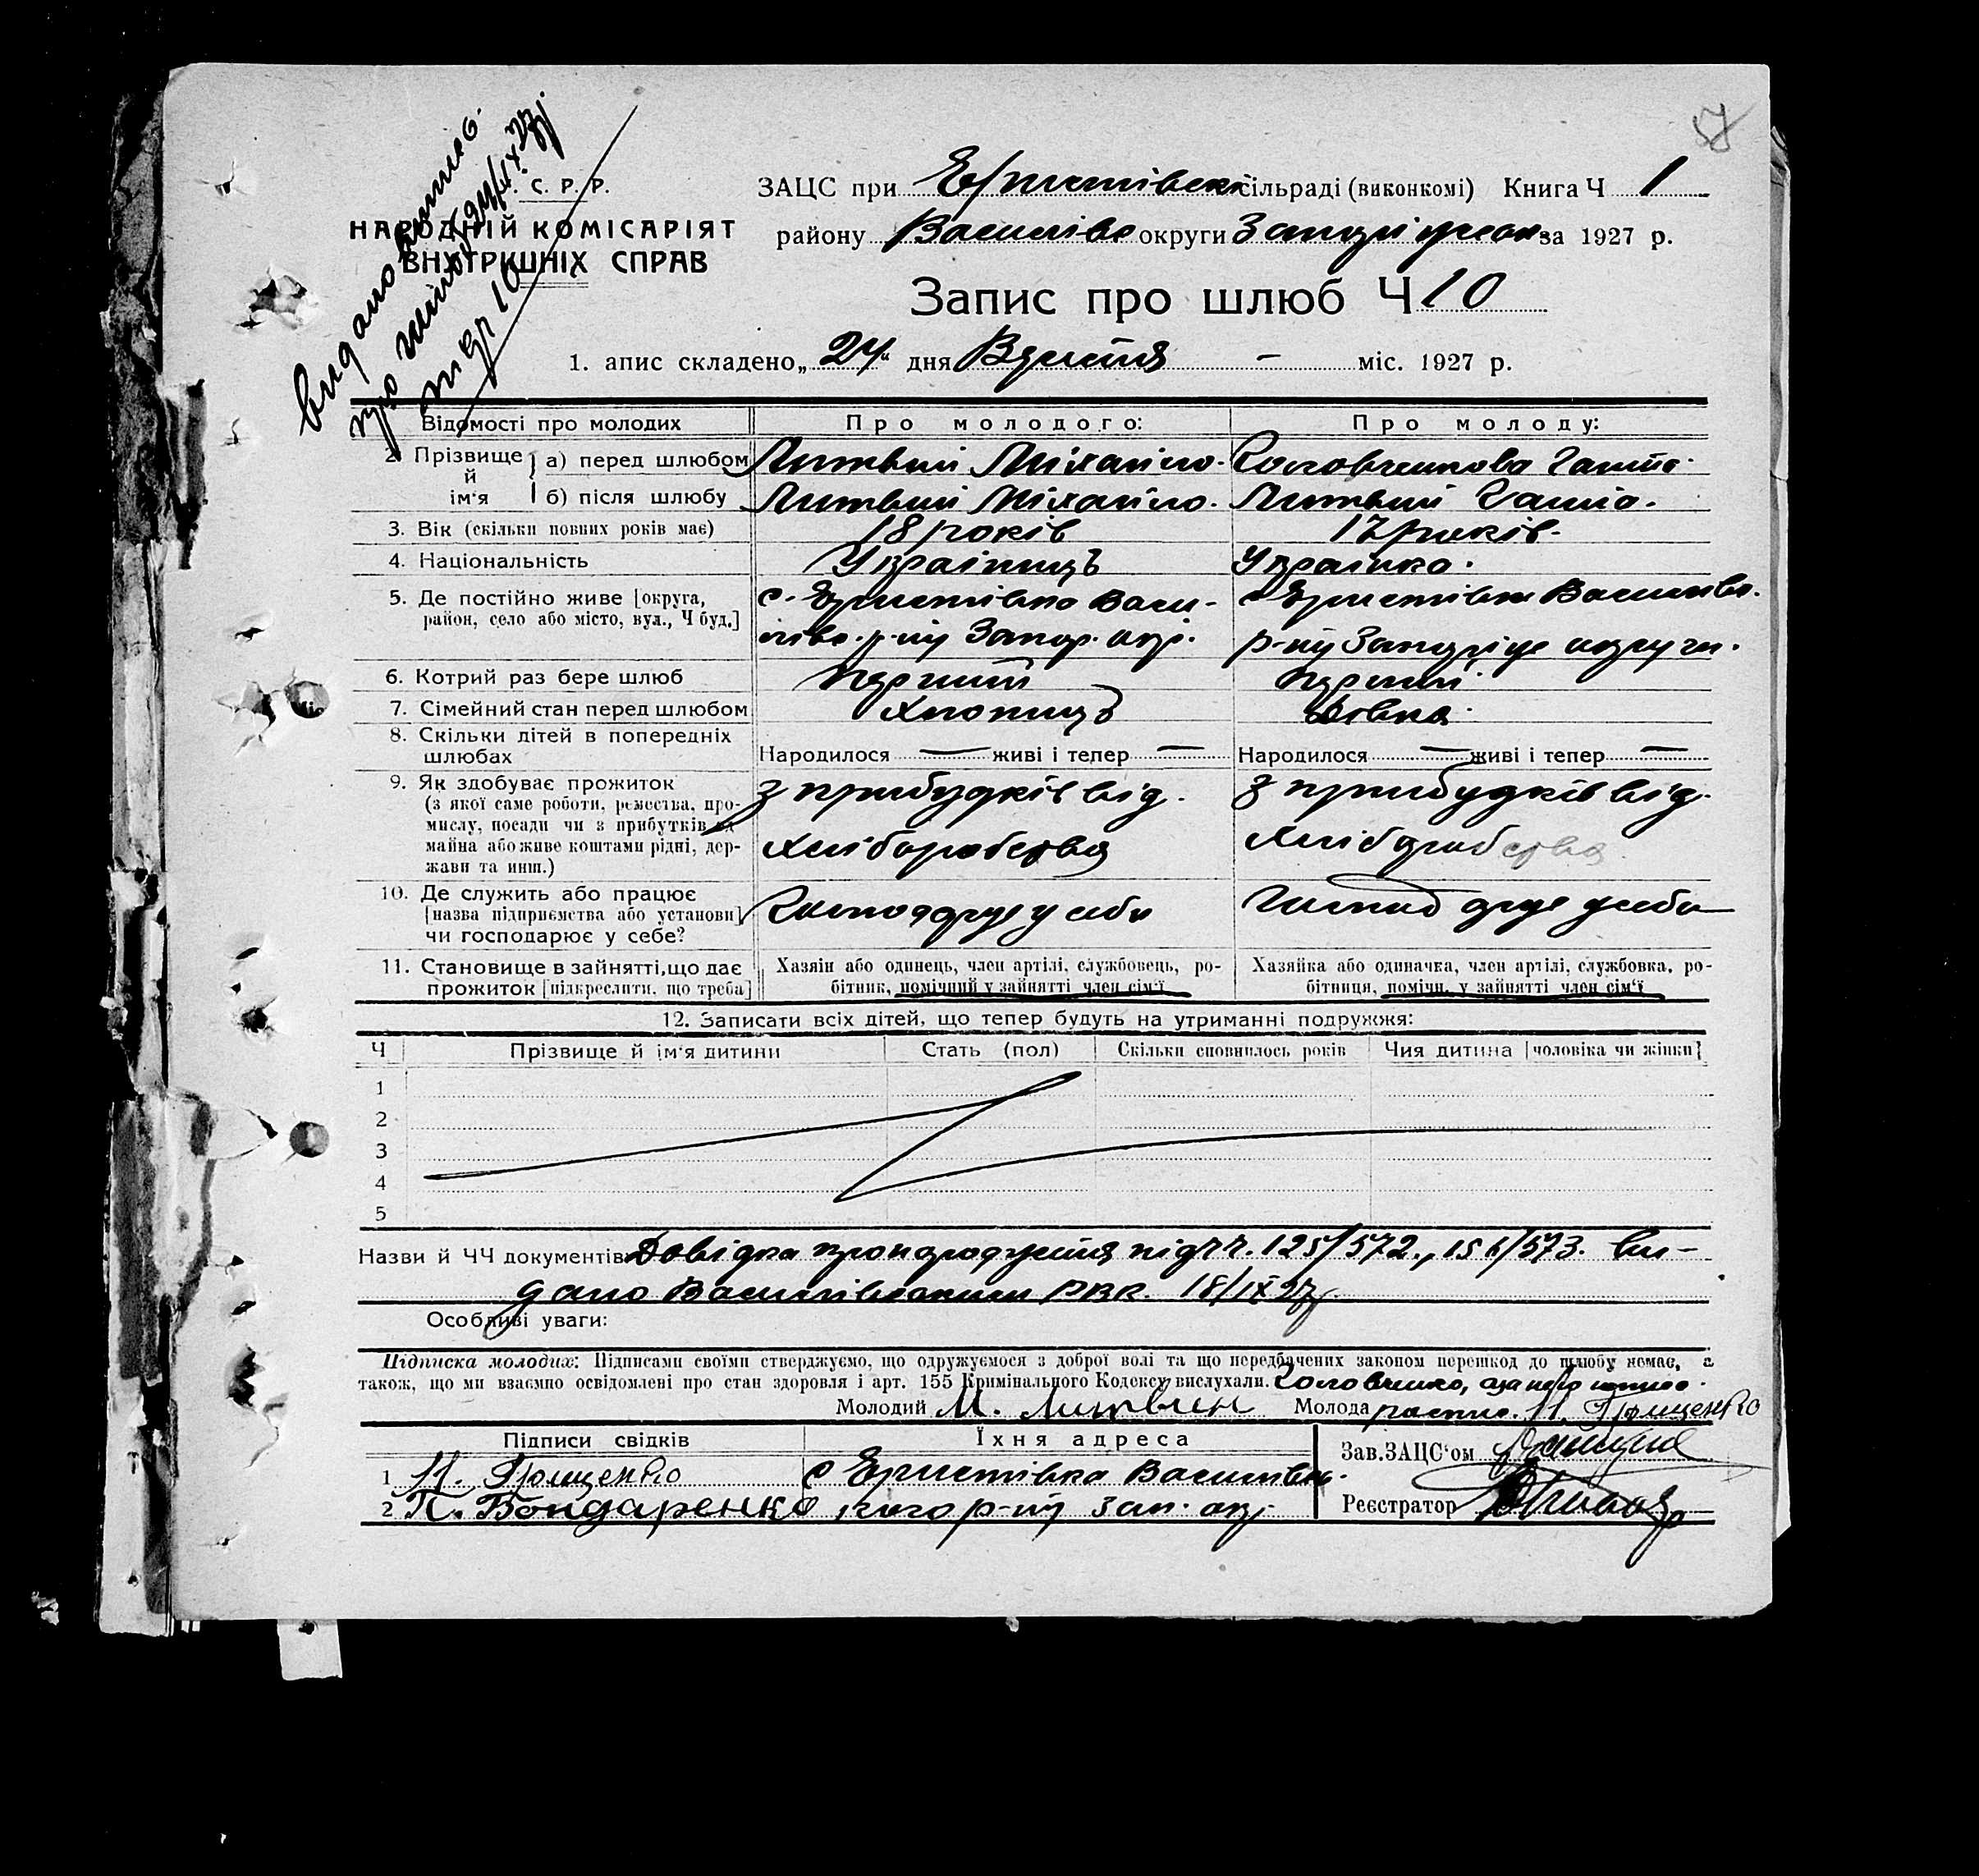 57
С. Р. Р.
НАРОДНІЙ КОМІСАРІЯТ
ВНУТРІШНІХ СПРАВ
видано
про шлюб 24/IX 27 р
10
ЗАЦС при Єристівскі сільраді (виконкомі) Книга Ч 1
району Василівс округи Запоріжськ за 1927 р.
Запис про шлюб Ч 10
1. апис складено „24" дня Вересня — міс. 1927 р.
Відомості про молодих Про молодого: Про молоду:
2. Прізвище й ім'я
а) перед шлюбом Литвин Міхайло. Головченкова Ганна.
б) після шлюбу Литвин Міхайло. Литвин Ганна.
3. Вік (скільки повних років має) 18 років 17 років.
4. Національність Українець Українка.
5. Де постійно живе [округа, район, село або місто, вул., Ч буд.] с. Єристівка Васи-
лівс. р-ну Запор. окр.
с Єристівка Василівс.
р-ну Запоріже округи.
6. Котрий раз бере шлюб перший перший.
7. Сімейний стан перед шлюбом Хлопець Дівка.
8. Скільки дітей в попередніх шлюбах Народилося — живі і тепер — Народилося — живі і тепер —
9. Як здобуває прожиток
(з якої саме роботи, ремества, про-
мислу, посади чи з прибутків од
майна або живе коштами рідні, дер-
жави та инш.)
з прибудків від.
хліборобства
з прибудків від.
хліборобства
10. Де служить або працює
[назва підприємства або установи]
чи господарює у себе?
Господарує у себе
Господарує у себе
11. Становище в зайнятті, що дає
прожиток [підкреслити, що треба]
Хазяін або одинець, член артілі, службовець, ро-
бітник, помічний у зайнятті член сім'ї
Хазяйка або одиначка, член артілі, службовка, ро-
бітниця, помічн. у зайнятті член сім'ї
12. Записати всіх дітей, що тепер будуть на утриманні подружжя:
Ч Прізвище й ім'я дитини Стать (пол) Скільки сповнилось років Чия дитина [чоловіка чи жінки]
1
2
3
4
5
Назви й ЧЧ документів Довідка про народження під чч. 125/572., 151/573. ви-
дано Василівським РВК. 18/IX 27 р
Особливі уваги:
Підписка молодих: Підписами своїми стверджуємо, що одружуємося з доброї волі та що передбачених законом перешкод до шлюбу немає, а
також, що ми взаємно освідомлені про стан здоровля і арт. 155 Кримінального Кодексу вислухали. Головченко, а за неї
Молодий М. Литвин Молода роспис. Н. Грищенко
Підписи свідків Їхня адреса
1 Н. Грищенко с Єристівка Василівсь-
2 П. Бондаренко кого р-ну Зап. окр
Зав. ЗАЦС'ом
Реєстратор